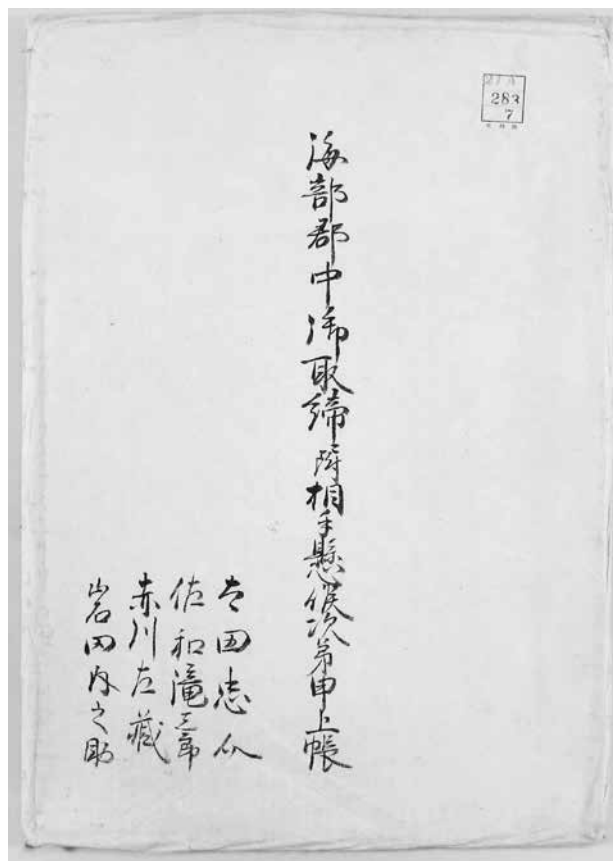 283
7
海部郡中御取締附相手懸候次第申上帳
太田忠
佐和滝三郎
赤川左蔵
岩田内之助